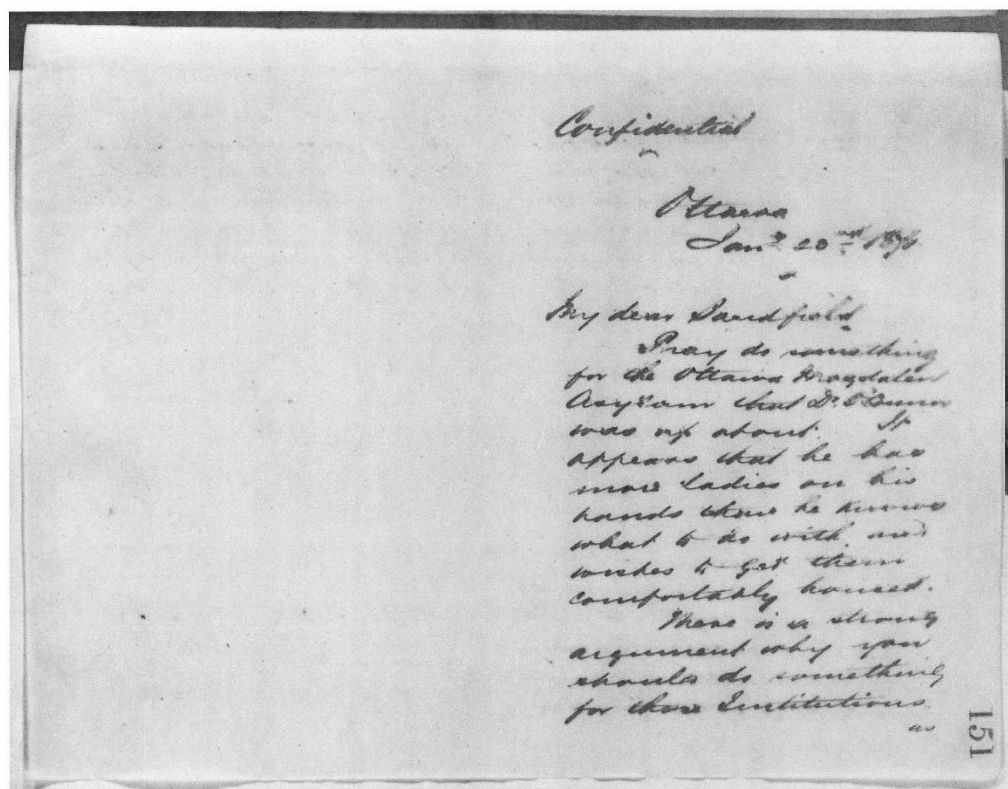 Confidential
Ottawa
Jany 23rd 187
My dear Sandfield
Pray do something
for the Ottawa Magdalen
Asylum that Dr.
was up about. It
appears that he has
more ladies on his
hands than he knows
what to do with, and
wishes to get them
comfortably housed.
There is a strong
argument why you
should do something
for those Institutions
as
151